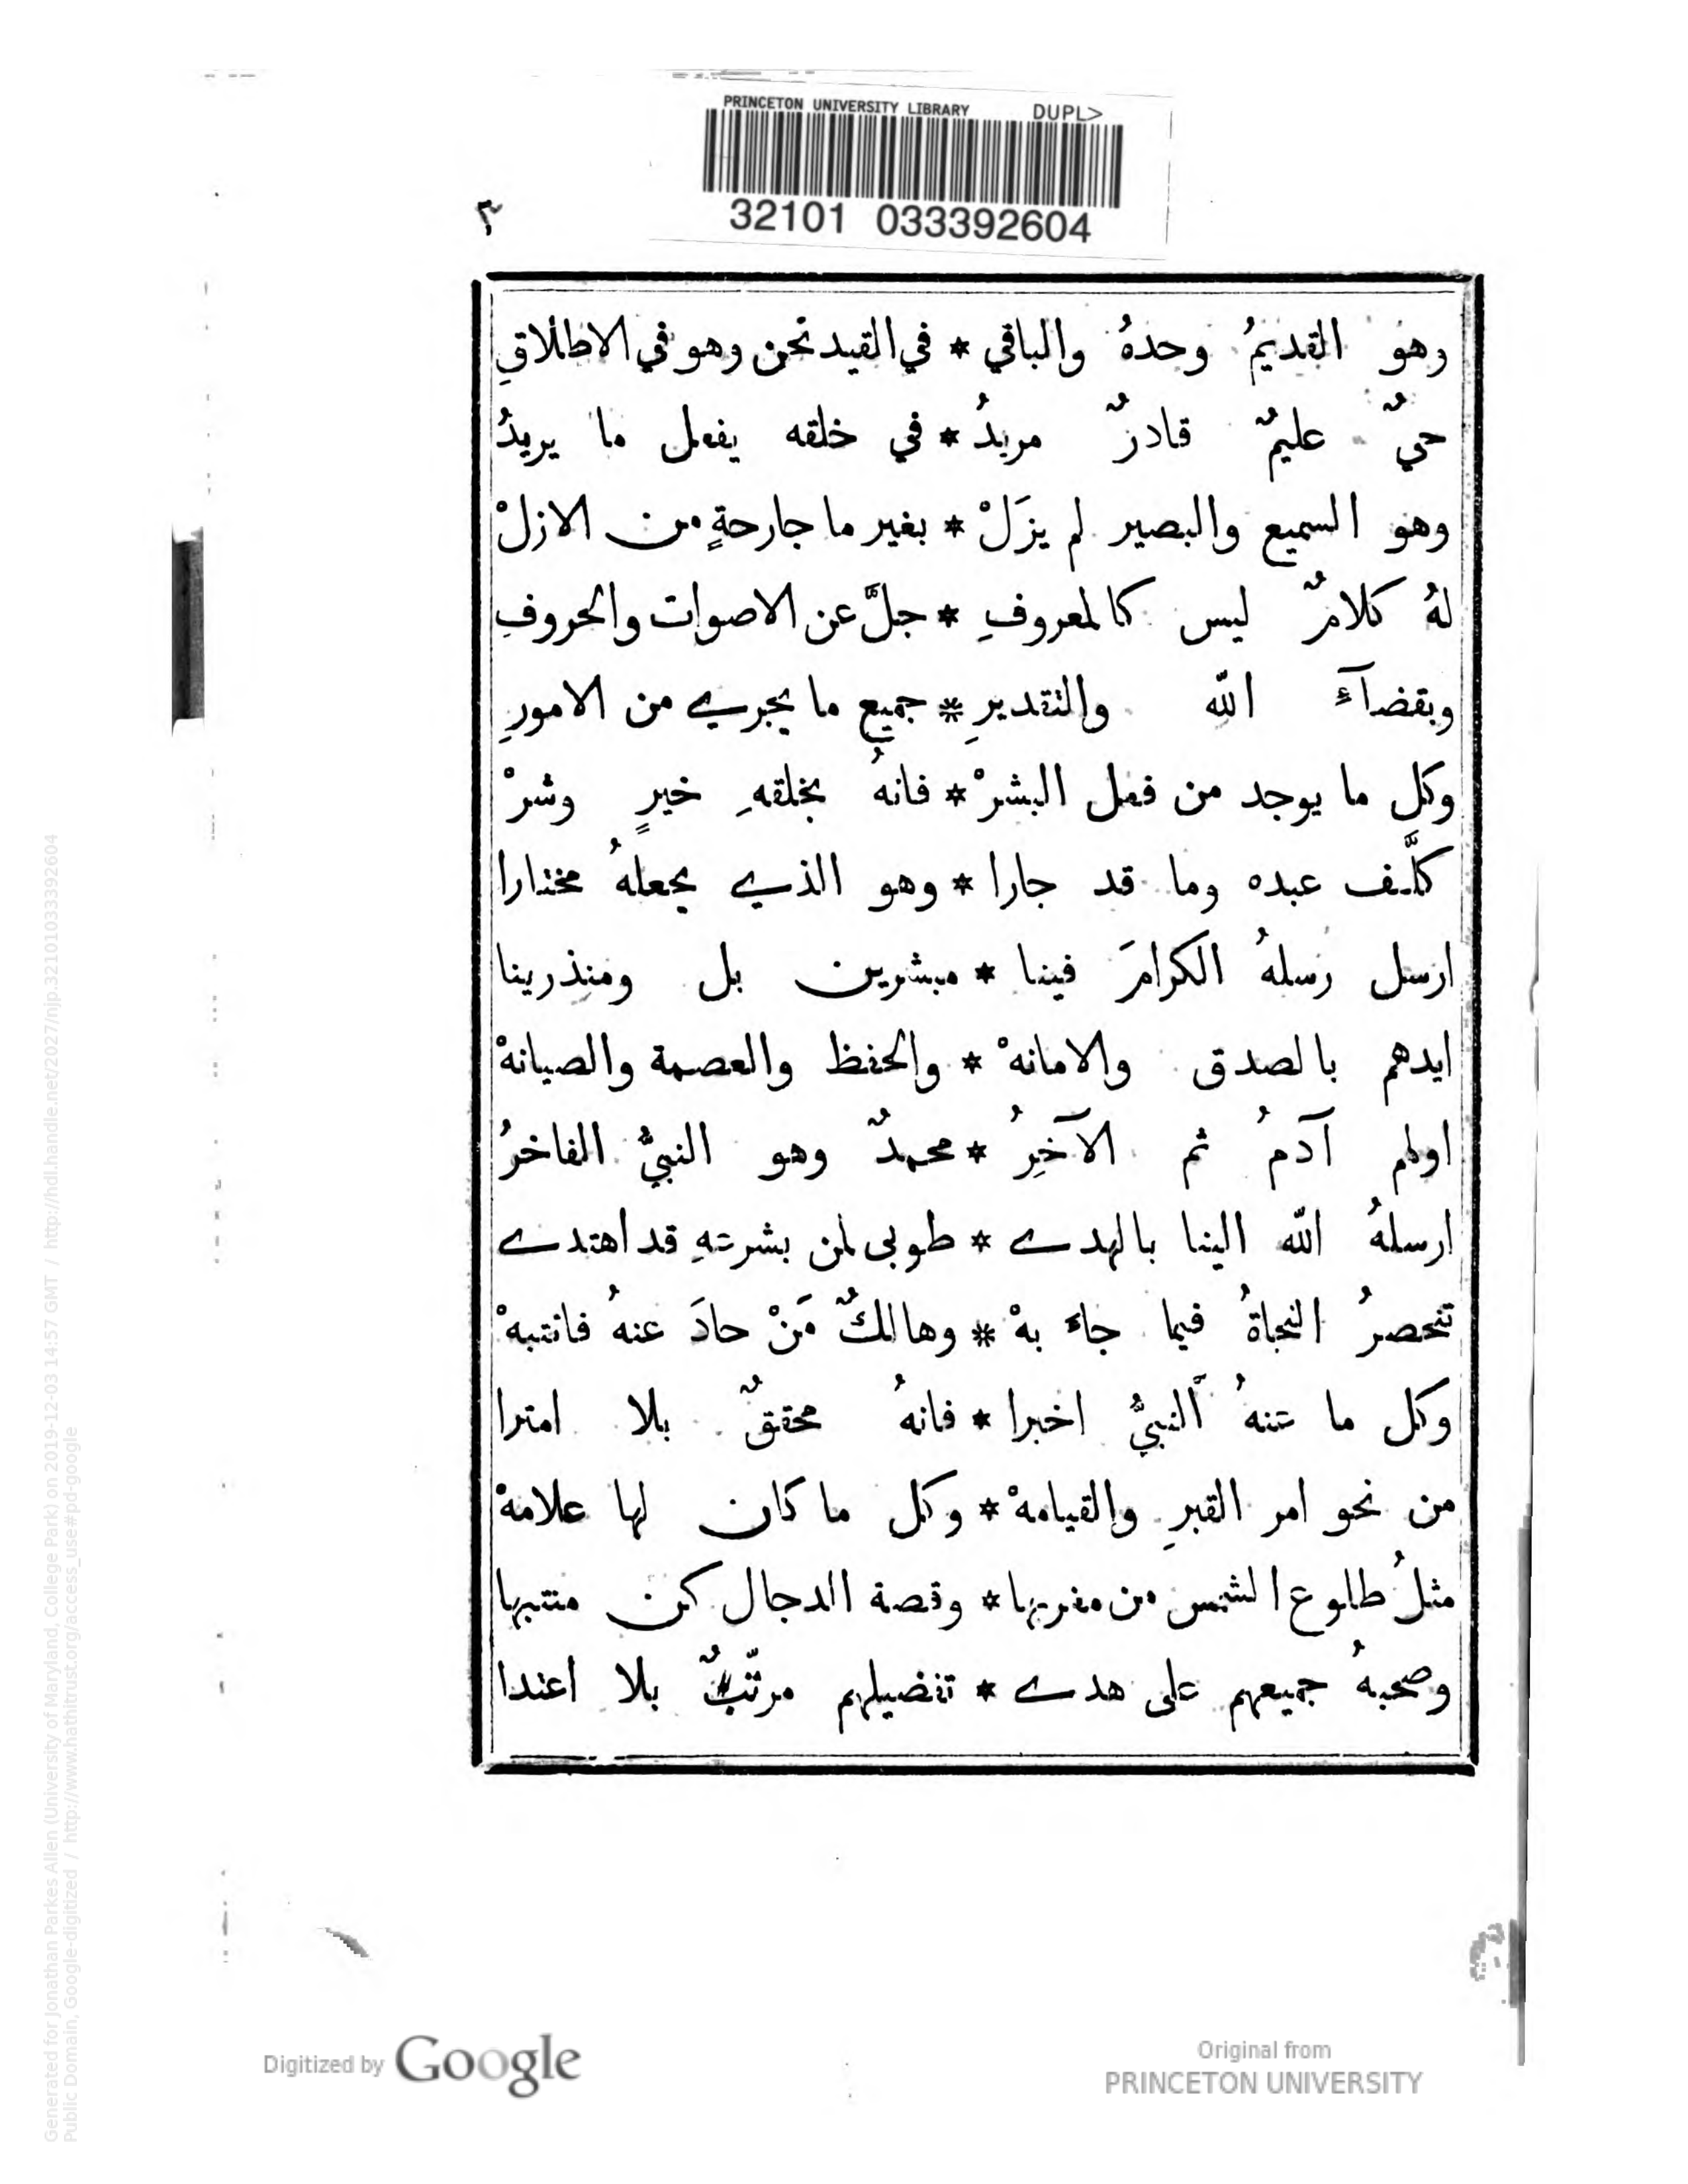 PRINCETON UNIVERSITY LIBRARY DUPL>
32101 033392604
٣
وهو القديمُ وحدهُ والباقي * في القيد نحن وهو في الاطلاقِ
حيٌّ عليمٌ قادرٌ مريدُ * في خلقه يفعل ما يريدُ
وهو السميع والبصير لم يزَلْ * بغير ما جارحةٍ من الازلْ
لهُ كلامٌ ليس كالمعروفِ * جلَّ عن الاصوات والحروفِ
وبقضآءِ الله والتقديرِ * جميع ما يجري من الامورِ
وكل ما يوجد من فعل البشرْ * فانهُ بخلقهِ خيرٍ وشرْ
كلَّف عبده وما قد جارا * وهو الذي يجعلهُ مختارا
ارسل رسلهُ الكرامَ فينا * مبشرين بل ومنذرينا
ايدهم بالصدق والامانهْ * والحفظ والعصمة والصيانهْ
اولهم آدمُ ثم الآخِرُ * محمدٌ وهو النبيُّ الفاخرُ
ارسلهُ الله الينا بالهدى * طوبى لمن بشرعتهِ قد اهتدى
تنحصرُ النجاةُ فيما جاء بهْ * وهالكٌ مَنْ حادَ عنهُ فانتبهْ
وكل ما عنهُ النبيُّ اخبرا * فانهُ محققٌ بلا امترا
من نحو امر القبرِ والقيامهْ * وكل ما كان لها علامهْ
مثلُ طلوع الشمس من مغربها * وقصة الدجال كن منتبها
وصحبهُ جميعهم على هدى * تفضيلهم مرتّبٌ بلا اعتدا
Digitized by Google
Original from
PRINCETON UNIVERSITY
Generated for Jonathan Parkes Allen (University of Maryland, College Park) on 2019-12-03 14:57 GMT / http://hdl.handle.net/2027/njp.32101033392604
Public Domain, Google-digitized / http://www.hathitrust.org/access_use#pd-google